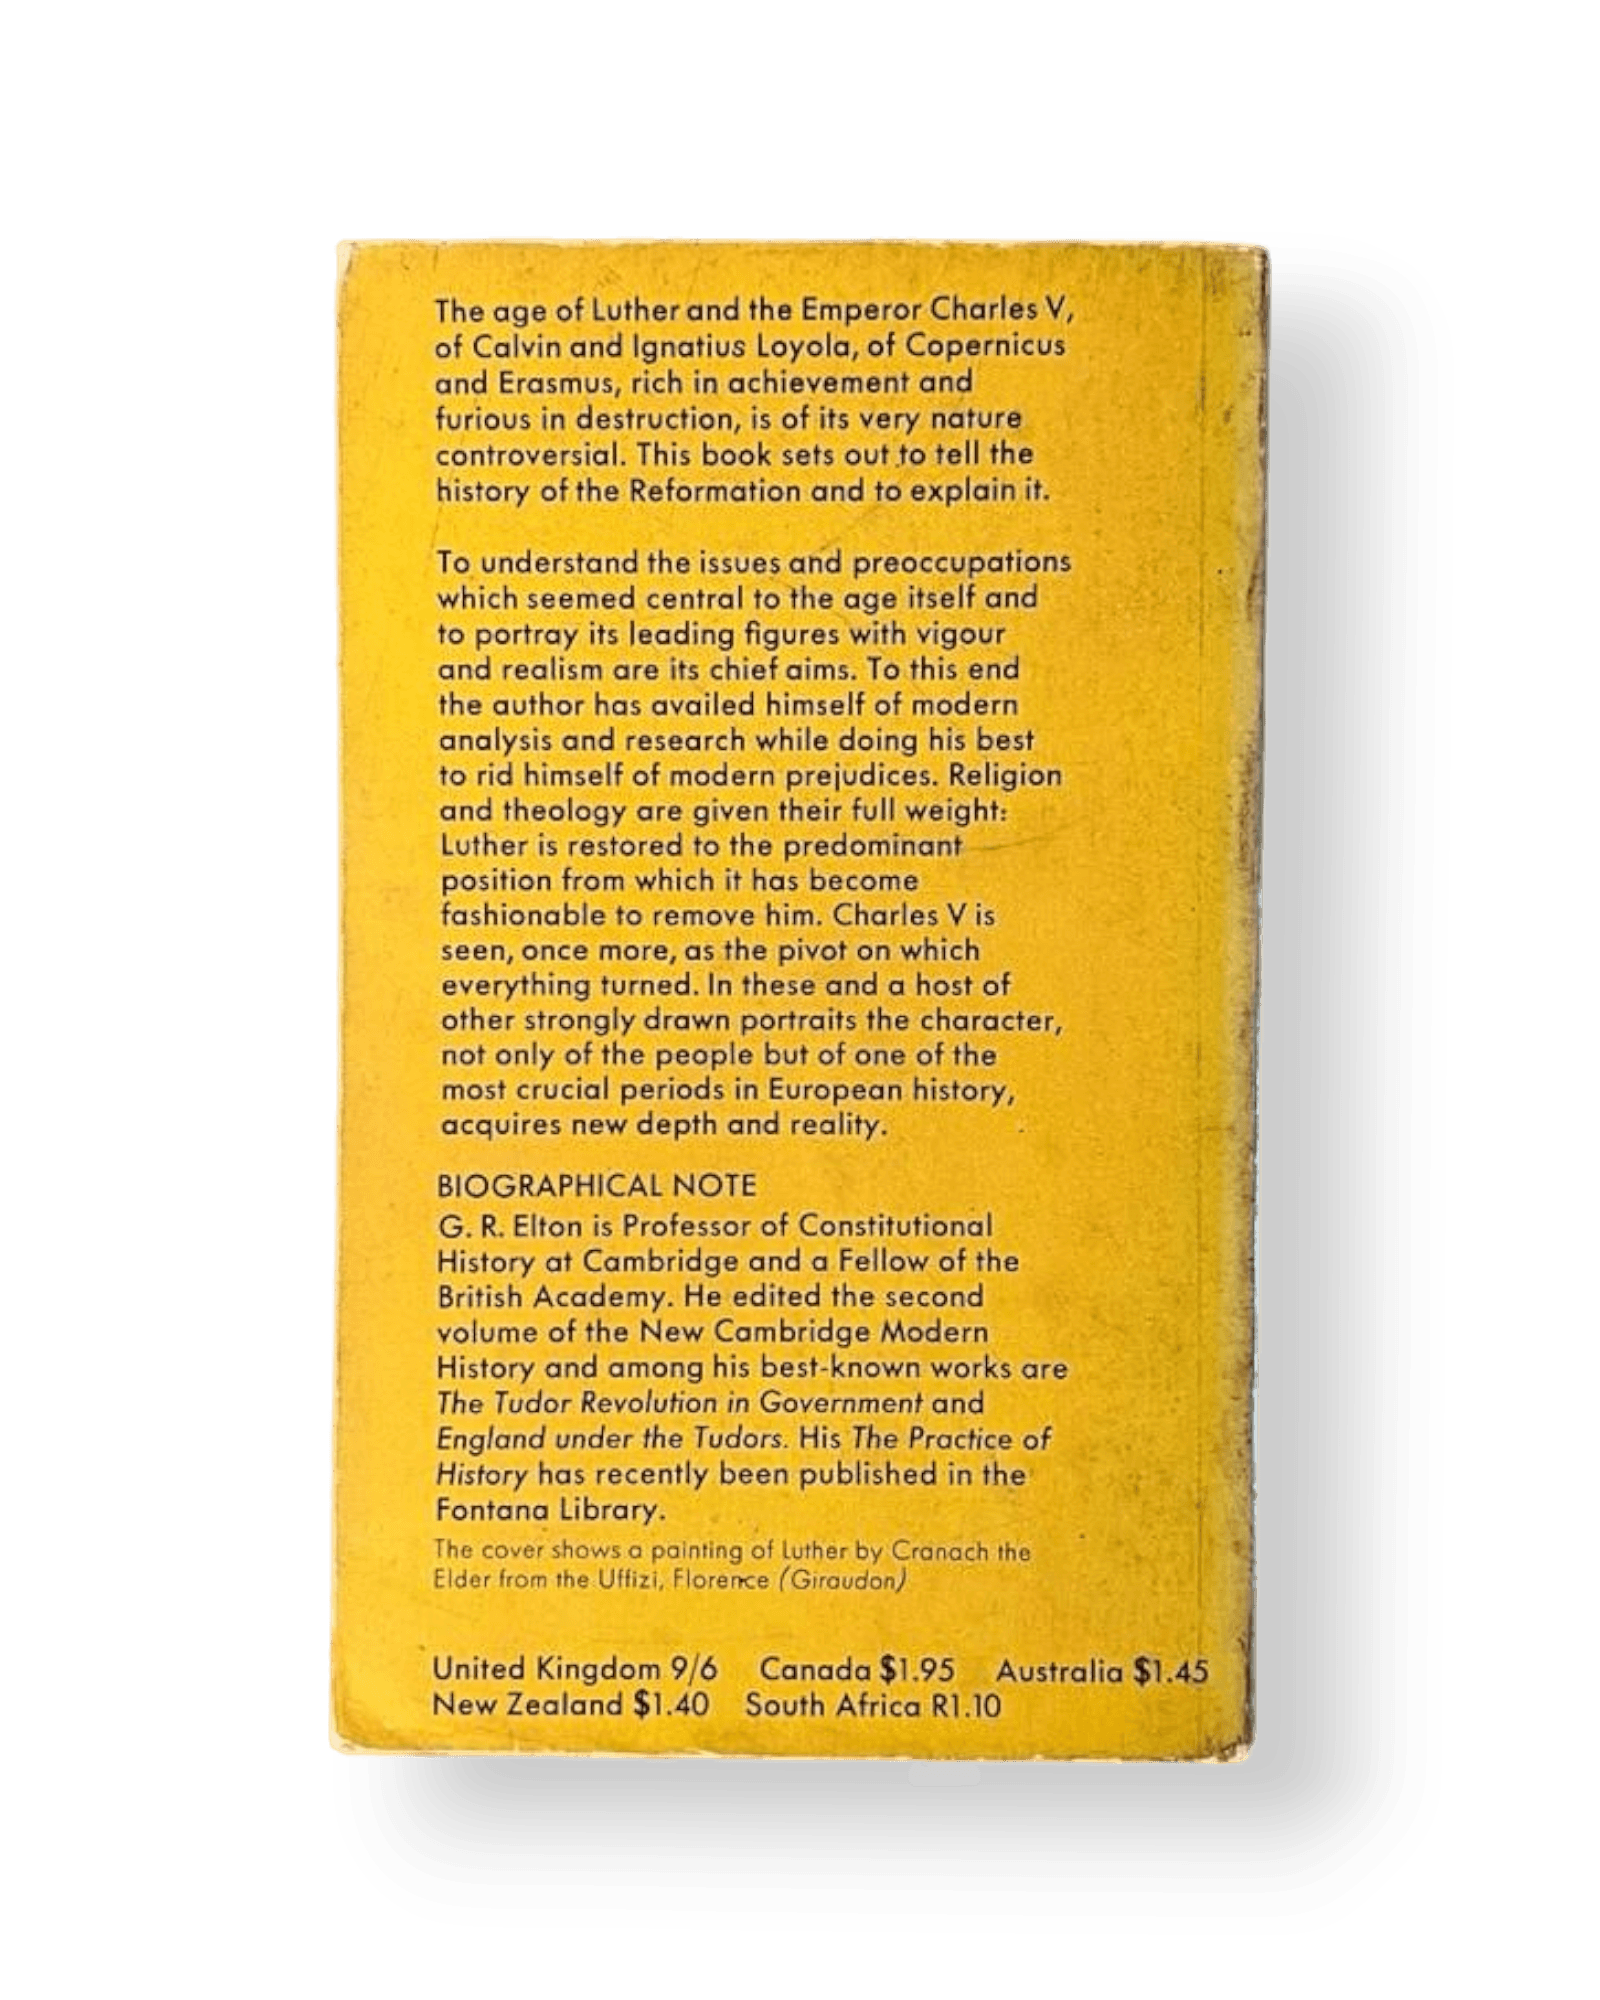 The age of Luther and the Emperor Charles V,
of Calvin and Ignatius Loyola, of Copernicus
and Erasmus, rich in achievement and
furious in destruction, is of its very nature
controversial. This book sets out to tell the
history of the Reformation and to explain it.
To understand the issues and preoccupations
which seemed central to the age itself and
to portray its leading figures with vigour
and realism are its chief aims. To this end
the author has availed himself of modern
analysis and research while doing his best
to rid himself of modern prejudices. Religion
and theology are given their full weight:
Luther is restored to the predominant
position from which it has become
fashionable to remove him. Charles V is
seen, once more, as the pivot on which
everything turned. In these and a host of
other strongly drawn portraits the character,
not only of the people but of one of the
most crucial periods in European history,
acquires new depth and reality.
BIOGRAPHICAL NOTE
G. R. Elton is Professor of Constitutional
History at Cambridge and a Fellow of the
British Academy. He edited the second
volume of the New Cambridge Modern
History and among his best-known works are
The Tudor Revolution in Government and
England under the Tudors. His The Practice of
History has recently been published in the
Fontana Library.
The cover shows a painting of Luther by Cranach the
Elder from the Uffizi, Florence (Giraudon)
United Kingdom 9/6 Canada $1.95 Australia $1.45
New Zealand $1.40 South Africa R1.10